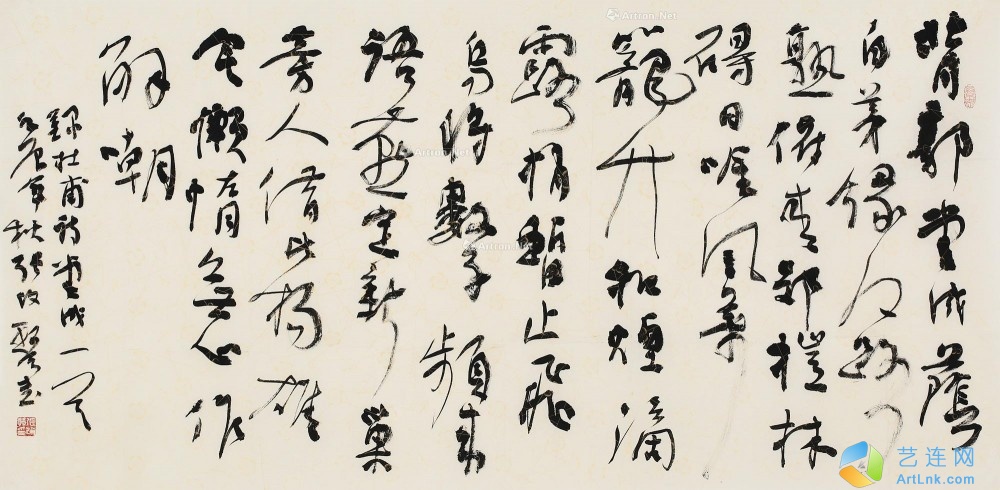 背郭堂成蔭
白茅緣江路
熟俯青郊榿林
碍日吟風葉
籠竹和煙滴
露梢暫止飛
烏將數子頻來
語燕定新巢
旁人借比楊雄
宅懶惰無心作
解嘲
録杜甫詩堂成一首
年秋張改琴書
Artron.Net
艺连网
ArtLnk.com